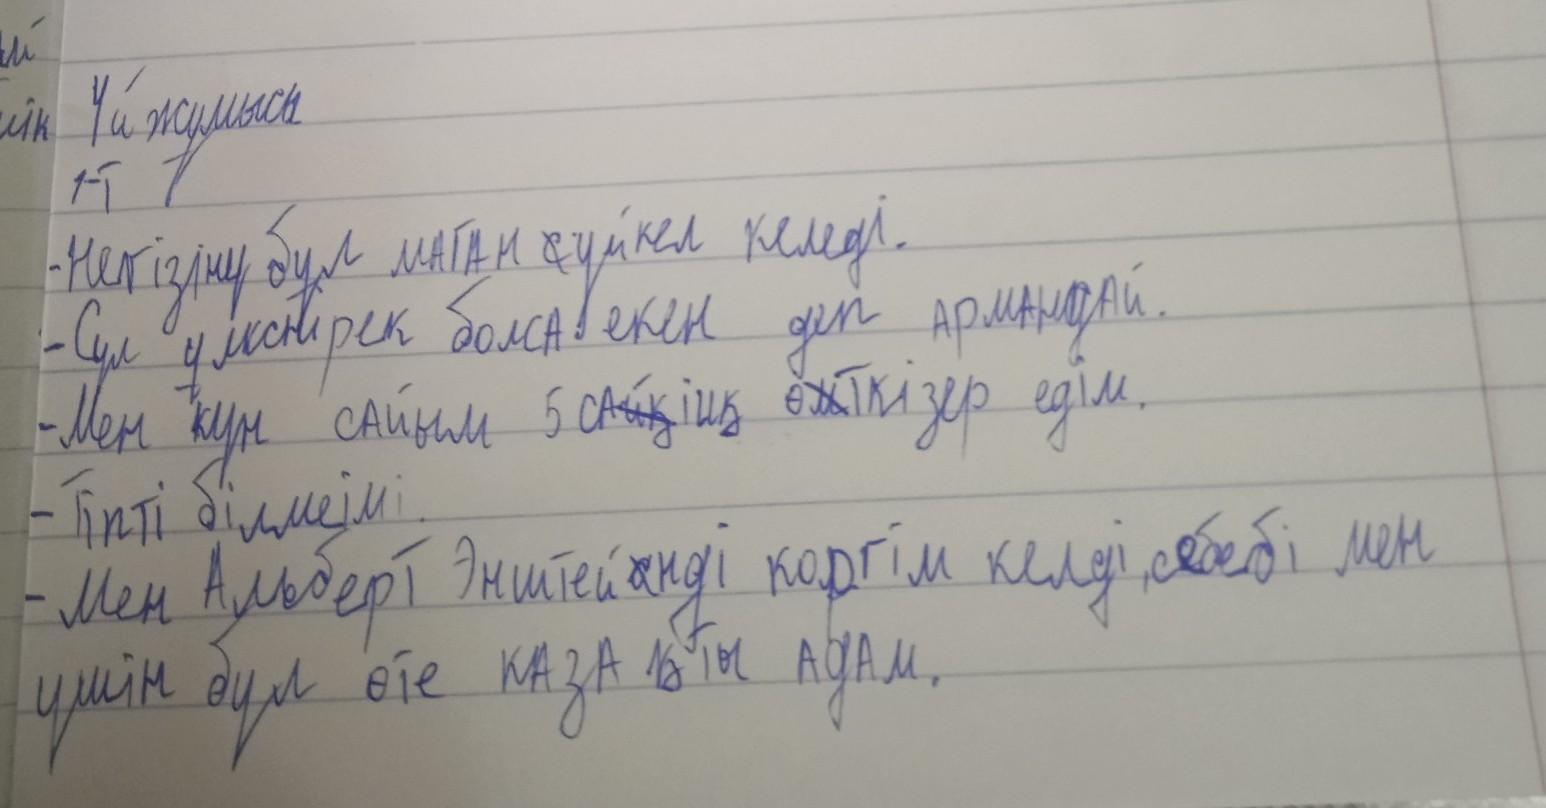 Үй жумысы
1-т
-Негізіну бул маған суйкел келеді.
-Сул улкенирек болса екен деп армандай.
-Мен кун сайым 5 өткізер едім.
-Тіпті білмеімі.
-Мен Альберт Энштейнді коргім келді, себебі мен
ушін бул өте казақты адам.